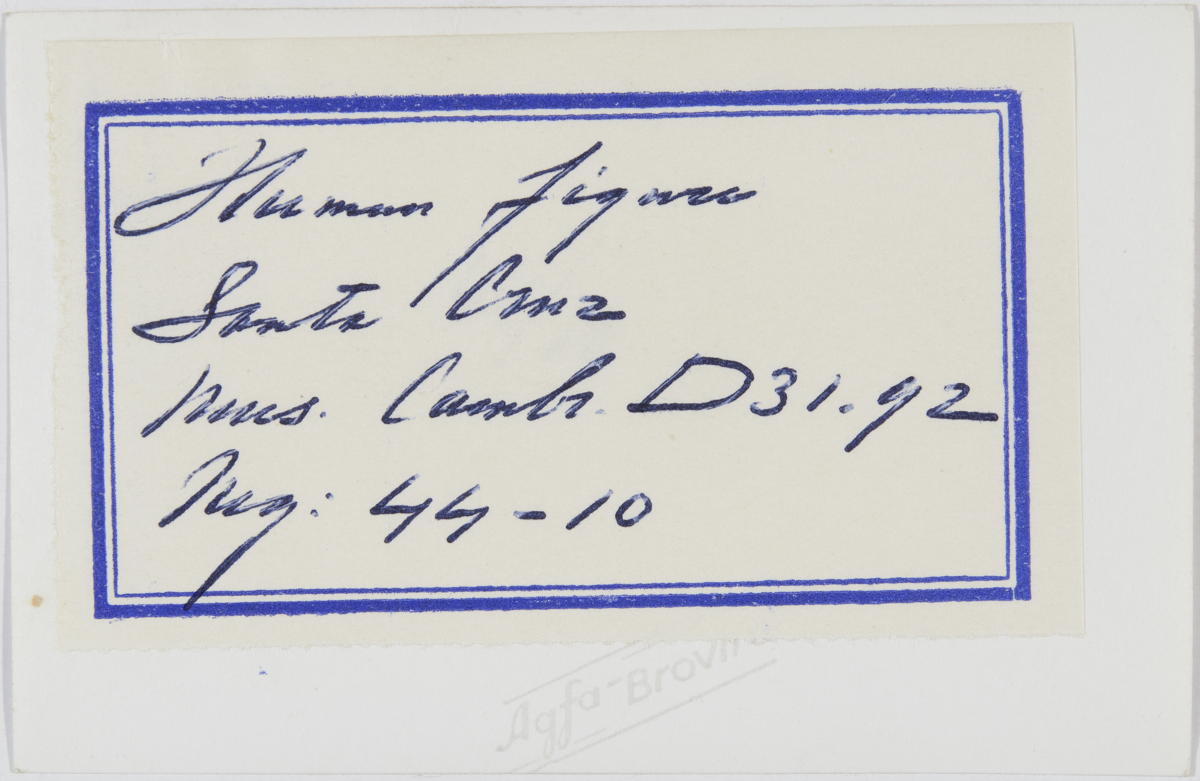 Human figure
Santa Cruz
Mus. Cambr. D31.92
Neg: 44-10
Agfa-Brovira